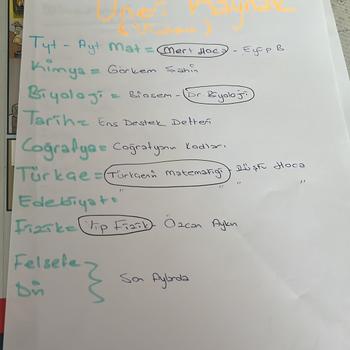 Öneri Kaynak
Tyt - Ayt Mat = Mert Hoca - Eyüp B
Kimya = Görkem Şahin
Biyoloji = Biosem - Dr. Biyoloji
Tarih = Ens Destek Defteri
Coğrafya = Coğrafyanın Kodları.
Türkçe = Türkçenin Matematiği - Rüştü Hoca
Edebiyat = " " "
Fizik = Vip Fizik - Özcan Aykın
Felsefe
Din
Son Aylarda